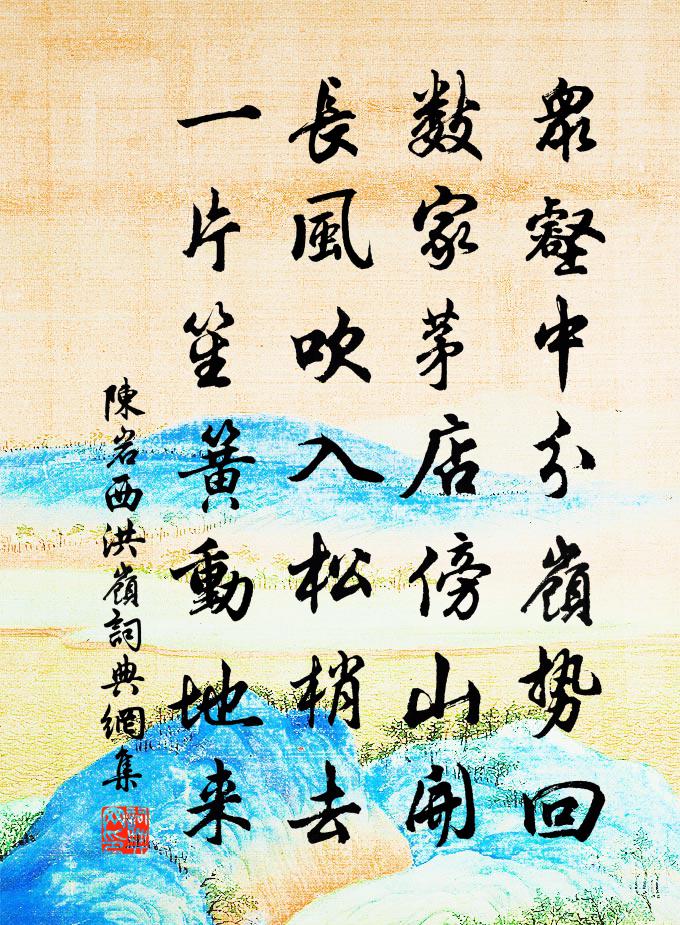 眾壑中分嶺势回
數家茅店傍山開
長風吹入松梢去
一片笙簧動地来
陳岩西洪嶺詞典網集